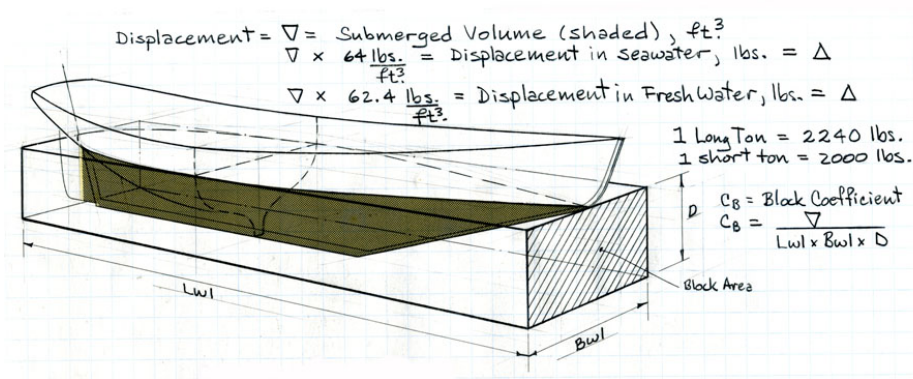 Displacement = ∇ = Submerged Volume (shaded), ft³.
∇ × 64 lbs./ft³. = Displacement in seawater, lbs. = Δ
∇ × 62.4 lbs./ft³. = Displacement in Fresh Water, lbs. = Δ
1 Long Ton = 2240 lbs.
1 short ton = 2000 lbs.
CB = Block Coefficient
CB = ∇ / Lwl x Bwl x D
D
Block Area
Lwl
Bwl